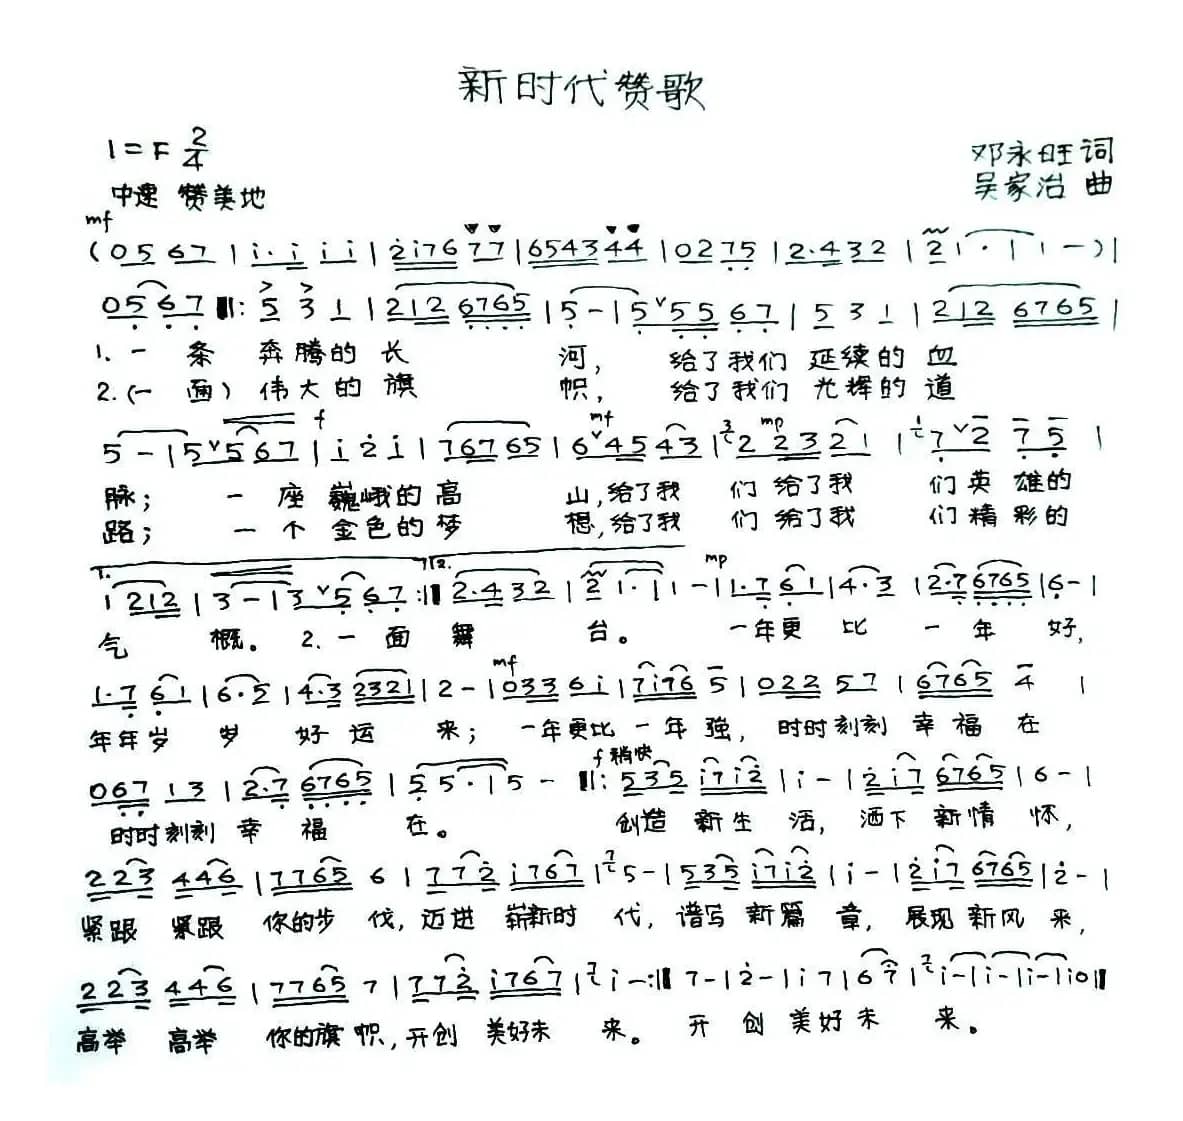 新时代赞歌
1=F 2/4
邓永旺词
中速 赞美地
吴家治 曲
mf
(05 67 | i. i i i | 2i76 77 | 6543 44 | 02 75 | 2.4 32 | 2 1. 1 | 1 -) |
05 67 ‖: 5 3 1 | 212 6765 | 5 - | 5 ∨ 55 67 | 5 3 1 | 212 6765 |
1. 一 条 奔腾的 长 河, 给了我们 延续的 血
2.(一 面) 伟大的 旗 帜, 给了我们 光辉的 道
f mf mp
5 - | 5 ∨ 5 67 | i 2 i | 76765 | 6 ∨ 45 43 | 2 23 21 | 7 ∨ 2 7 5 |
脉; 一 座 巍峨的 高 山,给了我 们 给了我 们 英 雄的
路; 一 个 金色的 梦 想,给了我 们 给了我 们 精 彩的
1. 2. mp
1 212 | 3 - | 3 ∨ 5 67 :‖ 2.4 32 | 2 1. 1 | 1 - | 1.7 61 | 4.3 | 2.7 6765 | 6 - |
气 概。 2. 一 面 舞 台。 一年更 比 一 年 好,
mf
1.7 61 | 6.5 | 4.3 2321 | 2 - | 033 6i | 7i76 5 | 022 57 | 6765 4 |
年年岁 岁 好 运 来; 一年更比 一 年 强, 时时刻刻 幸 福 在
f 稍快
067 13 | 2.7 6765 | 5 5. | 5 - ‖: 535 i7i2 | i - | 2i7 6765 | 6 - |
时时刻刻 幸 福 在。 创造 新 生 活, 洒下 新情 怀,
223 446 | 7765 6 | 772 i767 | 5 - | 535 i7i2 | i - | 2i7 6765 | 2 - |
紧跟 紧跟 你的步 伐,迈进 崭新时 代, 谱写 新 篇 章, 展现 新风 采,
223 446 | 7765 7 | 772 i767 | i - :‖ 7 - | 2 - | i 7 | 6 7 | i - | i - | i - | i0 ‖
高举 高举 你的旗 帜,开创 美好未 来。 开 创 美 好 未 来。